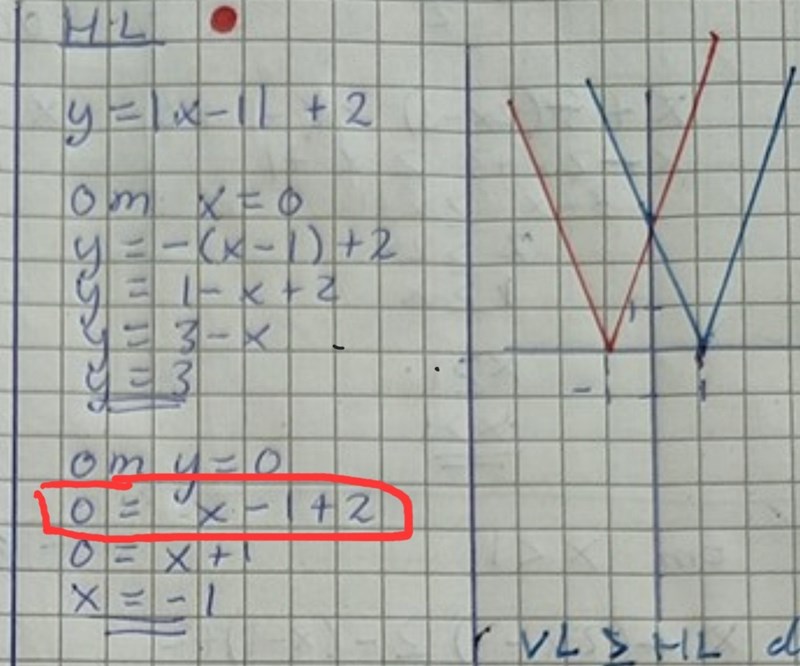 HL
y = |x-1| + 2
om x = 0
y = -(x-1) + 2
y = 1 - x + 2
y = 3 - x
y = 3
om y = 0
0 = x - 1 + 2
0 = x + 1
x = -1
1
-1 1
VL ≥ HL d